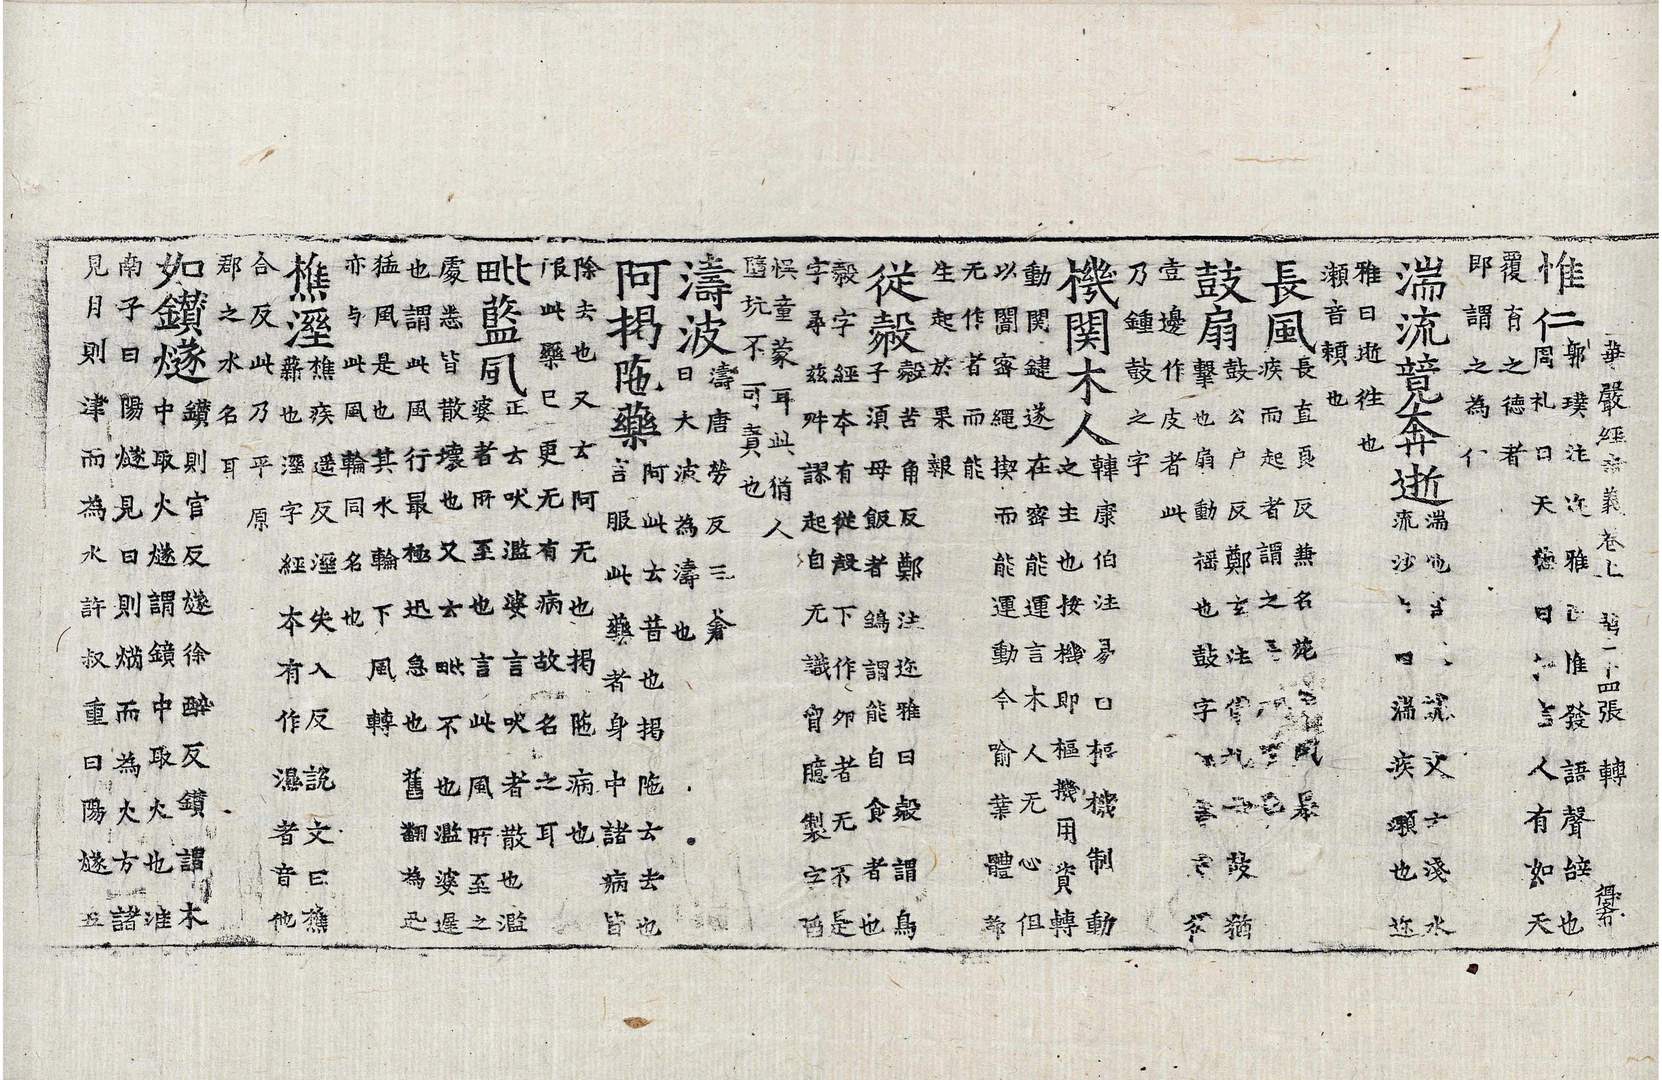 華嚴經音義卷上　第二十四張　轉
惟仁郭璞注尒雅曰惟發語聲辝也
周礼曰天德曰仁言人有如天
覆育之德者
即謂之為仁
湍流競奔逝湍說文云淺水
流沙上曰湍湍疾瀬也迩
雅曰逝徃也
瀬音頼也
長風長直良反兼名菀曰風暴
疾而起者謂之長風
鼓扇鼓公户反鄭玄注儒九云鼓猶
擊也扇動揺也鼓字
壹邊作皮者此
乃鍾鼓之字
機関木人韓康伯注易曰樞機制動
之主也按機即樞機用資轉
動関鍵遂在密能運言木人无心但
以闇密繩楔而能運動令喻業體都
无作者而能
生起於果報
従㲉㲉苦角反鄭注迩雅曰㲉謂鳥
子湏母飯者鴝謂能自食者也
㲉字經夲有從㲉下作卵者无不是
字尋兹舛謬起自无識㐮臆製字酋
悞童蒙耳此猶人
墮坑不可責也
濤波濤唐勞反三蒼
曰大波為濤也
阿掲陁藥阿此云昔也掲陁云去也
言服此藥者身中諸病皆
除去也又云阿无也掲陁病也
服此藥已更无有病故名之耳
毗藍風正云吠濫婆言吠者散也濫
婆者所至也言此風所至之
處悉皆散壞也又云毗不也濫婆遟
也謂此風行最極迅急也舊翻為迅
猛風是也其水輪下風轉
亦与此風輪同名也
樵溼樵疾遥反溼失入反說文曰樵
薪也溼字經夲有作濕者音他
合反此乃平原
郡之水名耳
如鑚燧鑚則官反燧徐醉反鑚謂木
中取火燧謂鏡中取火也淮
南子曰陽燧見日則燃而為火方諸
見月則津而為水許叔重曰陽燧五